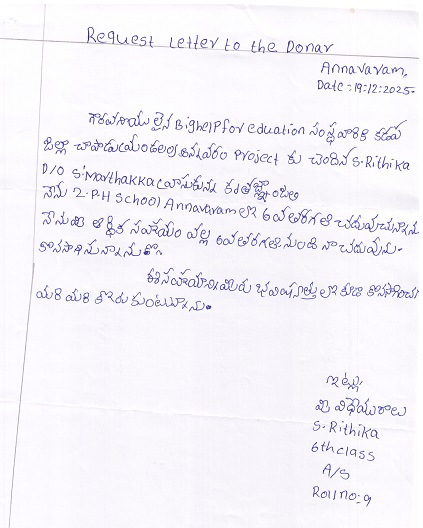 Request Letter to the Donar
Annavaram,
Date :19:12:2025.
గౌరవనీయులైన Bighelp for eduation సంస్థ వారికి కడప
జిల్లా చాపాడు మండలం అన్నవరం project కు చెందిన S.Rithika
D/o S.Marthakka వ్రాసుకున్న
నేను Z.P.H School Annavaram లో 6వ తరగతి చదువుచున్నాను
నేను మీ ఆర్థిక సహాయం వల్ల 6వ తరగతి నుండి నా చదువును
కొనసాగిస్తున్నాను.
ఈ సహాయాన్ని మీరు భవిష్యత్తు లో కూడా కొనసాగించా
మరి మరి కోరుకుంటున్నాను.
ఇట్లు
మీ విధేయురాలు
S.Rithika
6th class
A/S
Roll no:9